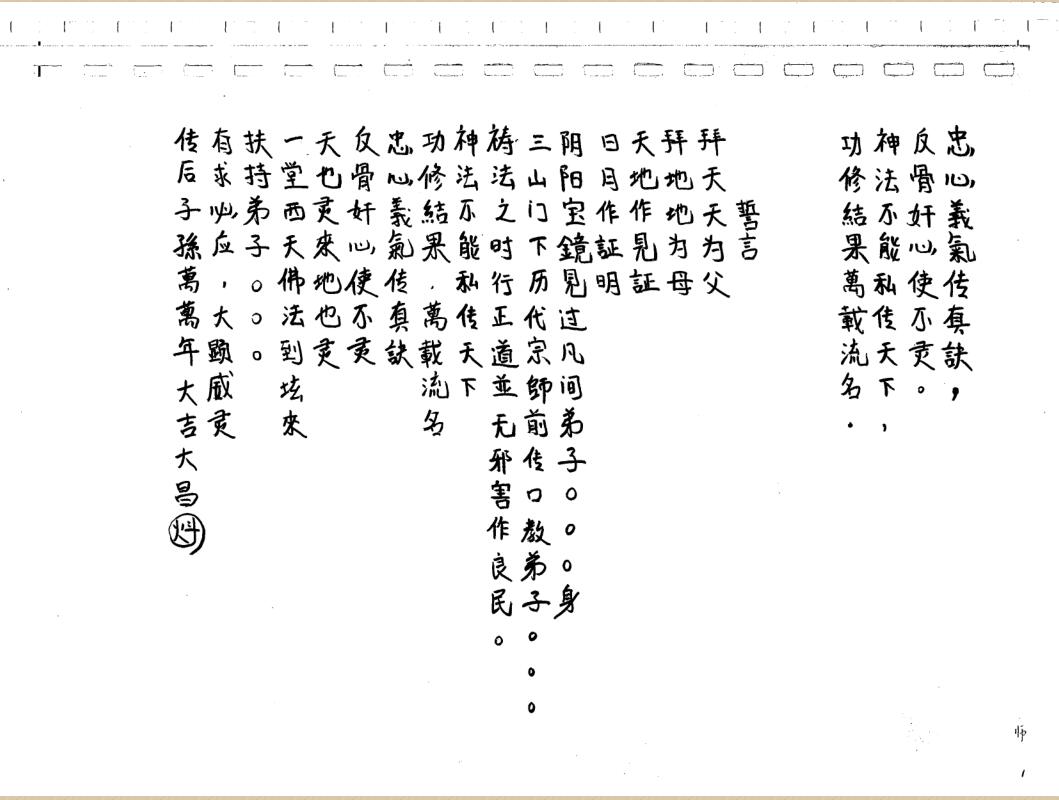 忠心義氣传真訣，
反骨奸心使不灵。
神法不能私传天下，
功修結果萬載流名．
誓言
拜天天为父
拜地地为母
天地作見証
日月作証明
阴阳宝鏡見过凡间弟子○○○身
三山门下历代宗師前传口教弟子○○○
祷法之时行正道並无邪害作良民。
神法不能私传天下
功修結果．萬載流名
忠心義氣传真訣
反骨奸心使不灵
天也灵來地也灵
一堂西天佛法到坛來
扶持弟子○○○
有求必应，大顕威灵
传后子孫萬萬年大吉大昌
师
1